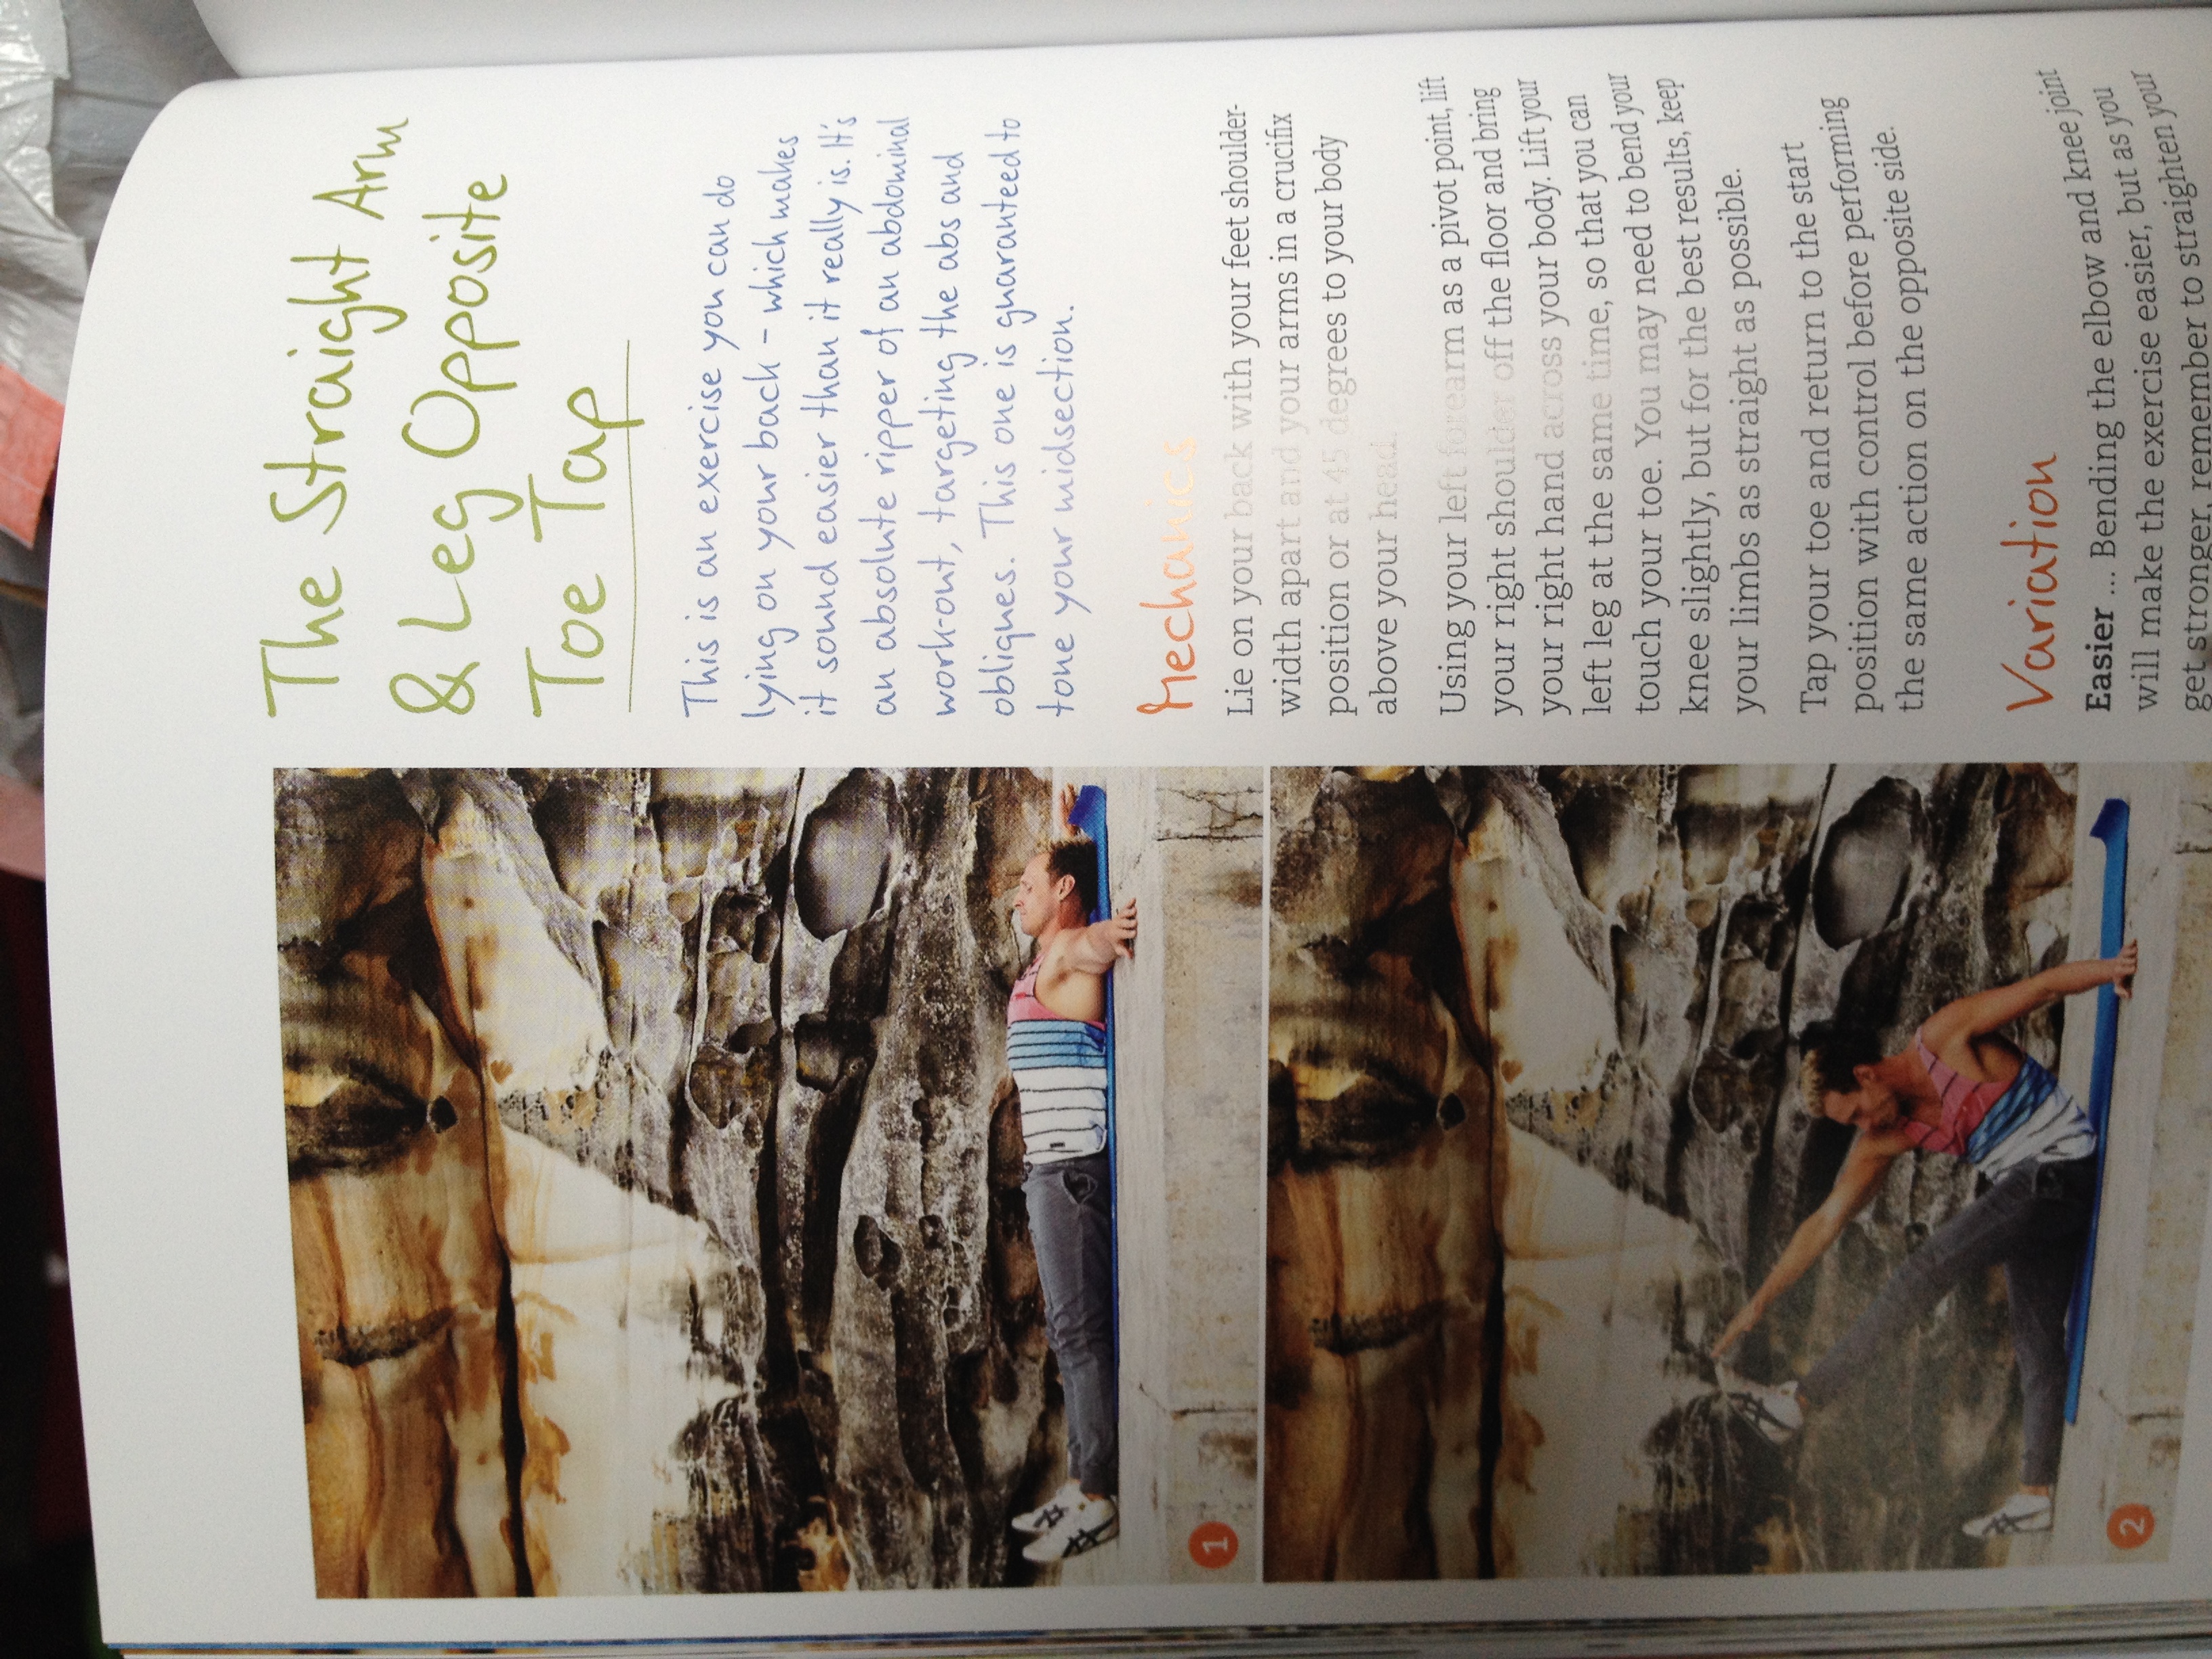 The Straight Arm
& Leg Opposite
Toe Tap
This is an exercise you can do
lying on your back - which makes
it sound easier than it really is. It's
an absolute ripper of an abdominal
work-out, targeting the abs and
obliques. This one is guaranteed to
tone your midsection.
Mechanics
Lie on your back with your feet shoulder-
width apart and your arms in a crucifix
position or at 45 degrees to your body
above your head.
Using your left forearm as a pivot point, lift
your right shoulder off the floor and bring
your right hand across your body. Lift your
left leg at the same time, so that you can
touch your toe. You may need to bend your
knee slightly, but for the best results, keep
your limbs as straight as possible.
Tap your toe and return to the start
position with control before performing
the same action on the opposite side.
Variation
Easier ... Bending the elbow and knee joint
will make the exercise easier, but as you
get stronger, remember to straighten your
1
2